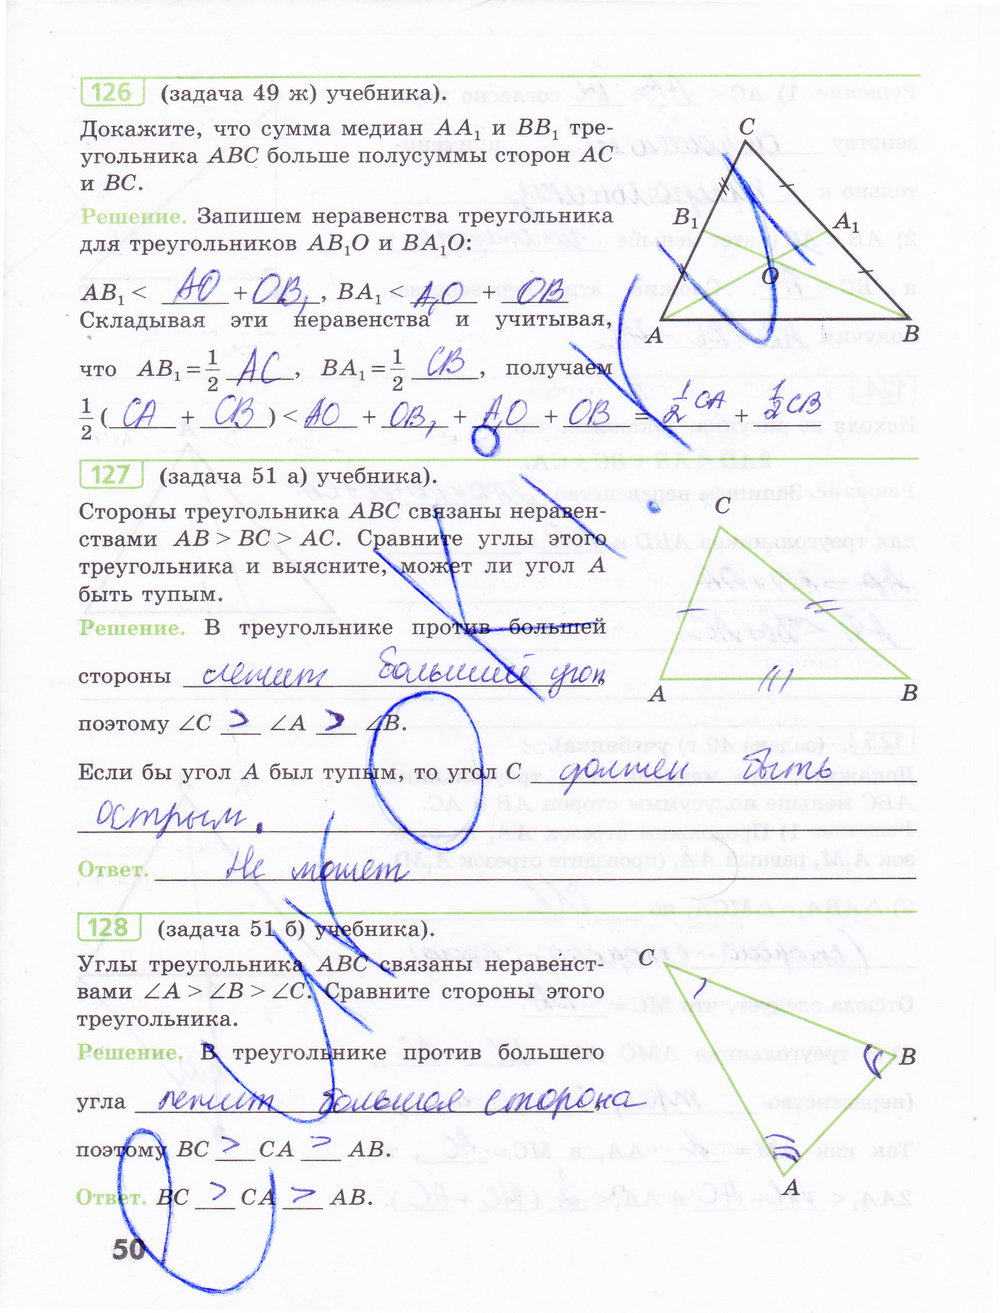 126 (задача 49 ж) учебника).
Докажите, что сумма медиан AA₁ и BB₁ тре-
угольника ABC больше полусуммы сторон AC
и BC.
Решение. Запишем неравенства треугольника
для треугольников AB₁O и BA₁O:
AB₁ < AO + OB₁, BA₁ < A₁O + OB
Складывая эти неравенства и учитывая,
что AB₁ = 1/2 AC, BA₁ = 1/2 CB, получаем
1/2 (CA + CB) < AO + OB₁ + A₁O + OB = 1/2 CA + 1/2 CB
C
B₁
A₁
O
A
B
127 (задача 51 а) учебника).
Стороны треугольника ABC связаны неравен-
ствами AB > BC > AC. Сравните углы этого
треугольника и выясните, может ли угол A
быть тупым.
Решение. В треугольнике против большей
стороны лежит больший угол,
поэтому ∠C > ∠A > ∠B.
Если бы угол A был тупым, то угол C должен быть
острым.
Ответ. Не может
C
A
B
128 (задача 51 б) учебника).
Углы треугольника ABC связаны неравенст-
вами ∠A > ∠B > ∠C. Сравните стороны этого
треугольника.
Решение. В треугольнике против большего
угла лежит большая сторона
поэтому BC > CA > AB.
Ответ. BC > CA > AB.
C
B
A
50